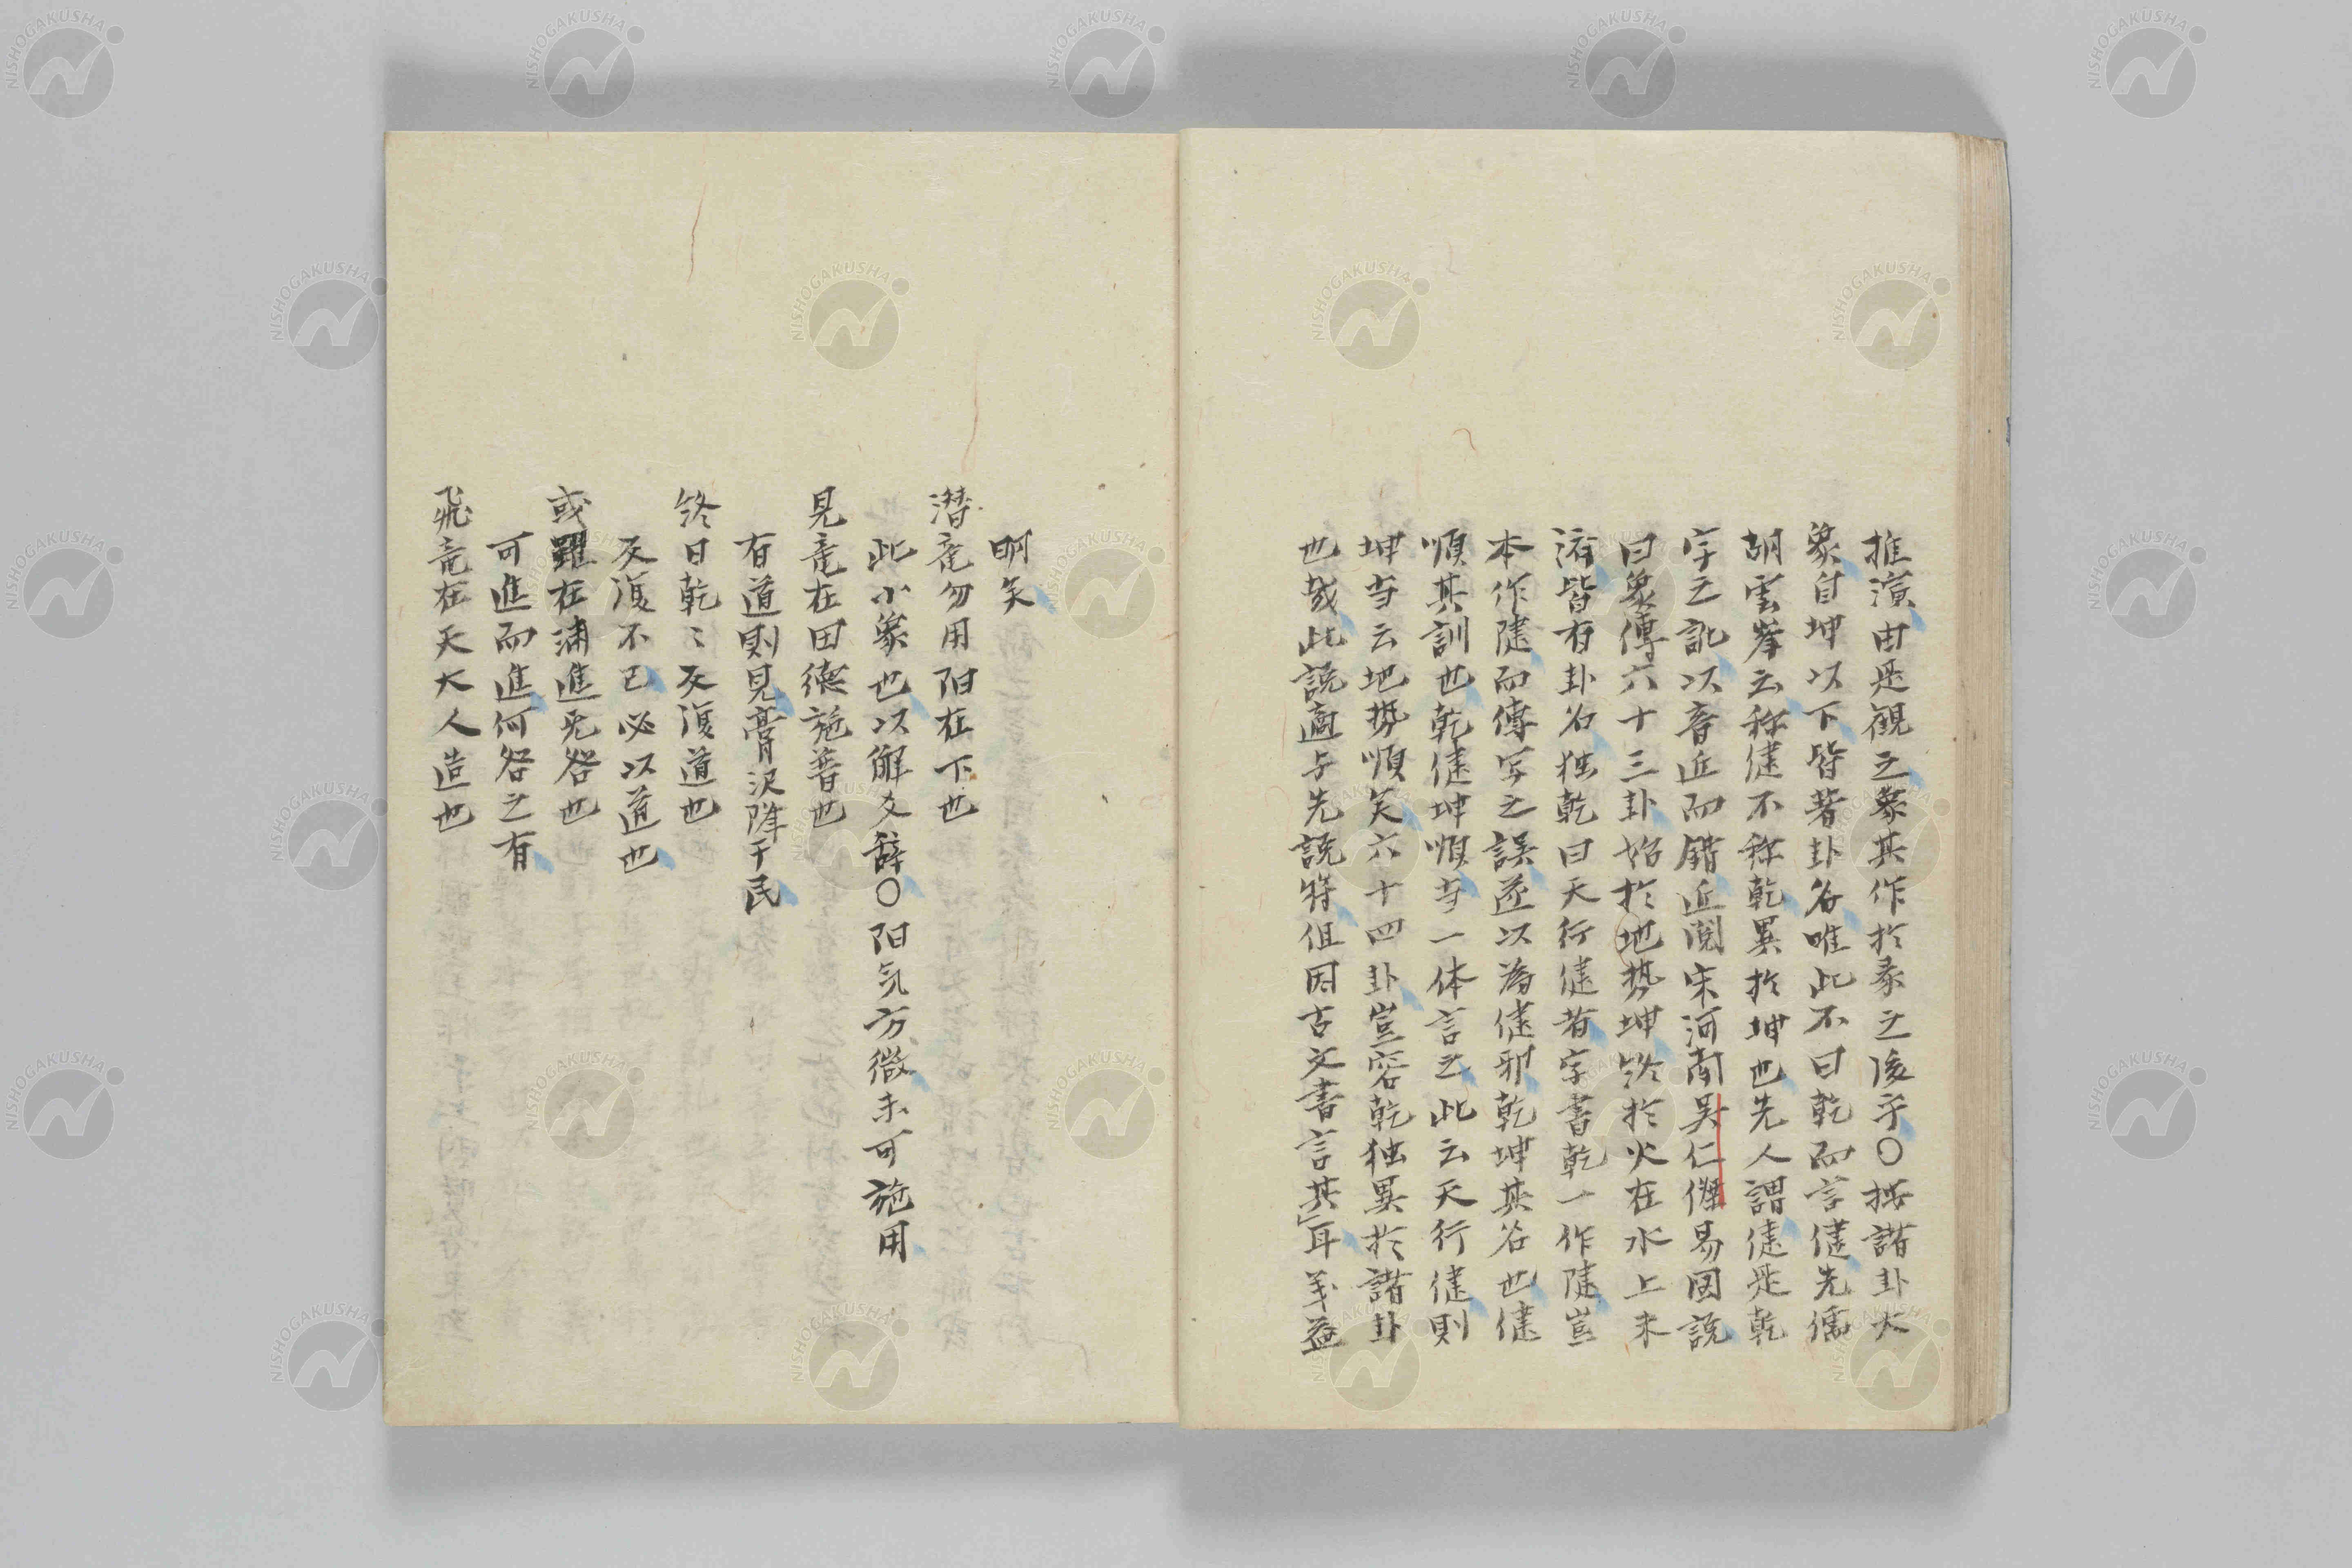 推演由是観之象其作於彖之後乎〇按諸卦大
象自坤以下皆著卦名唯此不曰乾而言健先儒
胡雲峯云称健不称乾異於坤也先人謂健是乾
字之訛以音近而錯近閲宋河南吴仁傑易図説
曰象傳六十三卦始於地勢坤終於火在水上未
済皆有卦名独乾曰天行健者字書乾一作𨺩豈
本作𨺩而傳写之誤遂以為健邪乾坤其名也健
順其訓也乾健坤順寺一体言之此云天行健則
坤寺云地勢順矣六十四卦豈容乾独異於諸卦
也哉此説適与先説符但因古文書言其耳羊益
明矣
潜竜勿用阳在下也
此小象也以解爻辞〇阳気方微未可施用
見竜在田徳施普也
有道則見膏沢降于民
終日乾〻反復道也
反復不已必以道也
或躍在渊進无咎也
可進而進何咎之有
飛竜在天大人造也
NISHOGAKUSHA